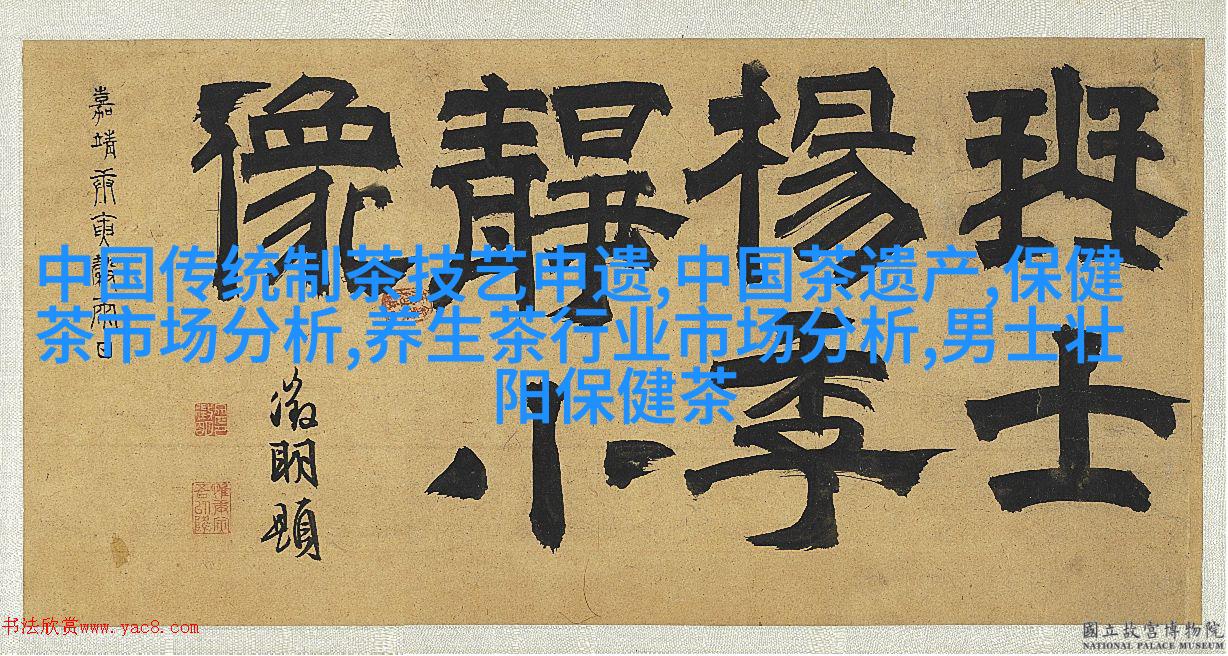 琴士
楊季
靜小
像
嘉靖庚寅穀雨日
徵明題
中国传统制茶技艺申遗,中国茶遗产,保健
茶市场分析,养生茶行业市场分析,男士壮
阳保健茶
书法欣赏www.yac8.com
國立故宮博物院
NATIONAL PALACE MUSEUM